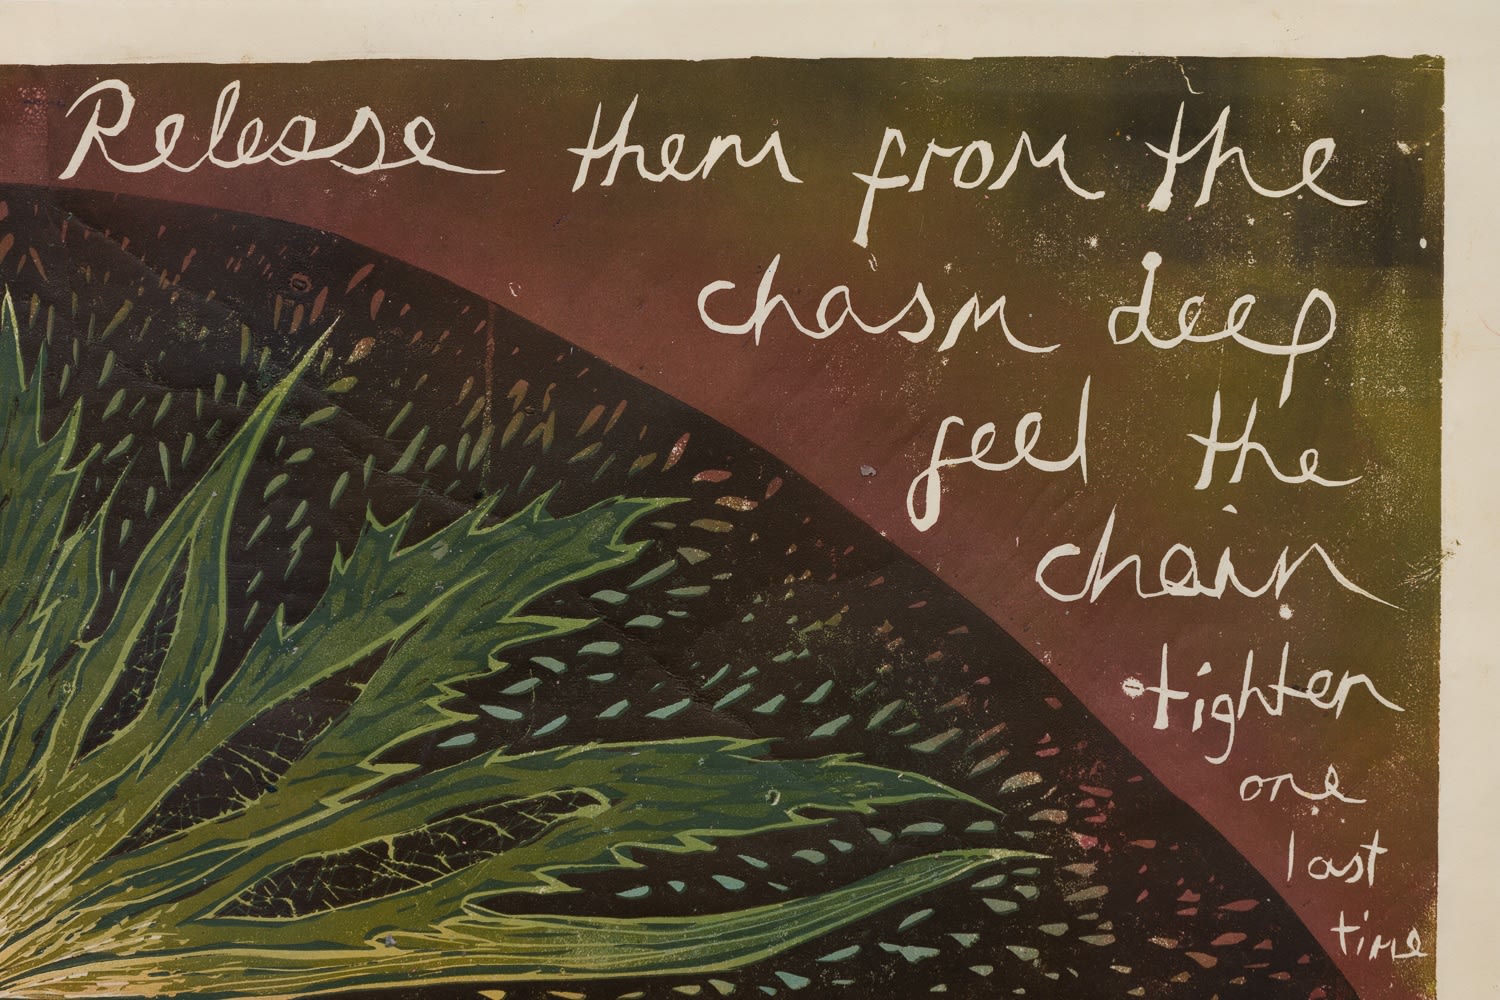 Release them from the
chasm deep
feel the
chain
tighten
one
last
time